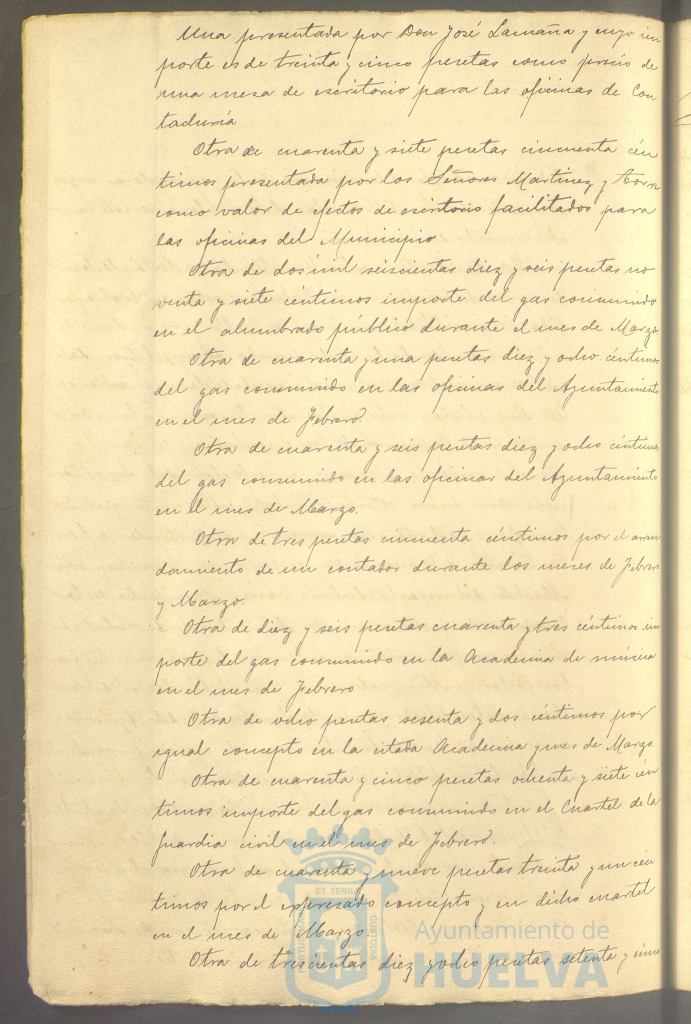 Una presentada por Don José Lamaña y cuyo im
porte es de treinta y cinco pesetas como precio de
una mesa de escritorio para las oficinas de Con
taduría
Otra de cuarenta y siete pesetas cincuenta cén
timos presentada por los Señores Martinez y
como valor de efectos de escritorio facilitados para
las oficinas del Municipio
Otra de dos mil seiscientas diez y seis pesetas no
venta y siete céntimos importe del gas consumido
en el alumbrado público durante el mes de Marzo.
Otra de cuarenta y una pesetas diez y ocho céntimos
del gas consumido en las oficinas del Ayuntamiento
en el mes de Febrero.
Otra de cuarenta y seis pesetas diez y ocho céntimos
del gas consumido en las oficinas del Ayuntamiento
en el mes de Marzo.
Otra de tres pesetas cincuenta céntimos por el arren
damiento de un contador durante los meses de Febrero
y Marzo.
Otra de diez y seis pesetas cuarenta y tres céntimos im
porte del gas consumido en la Academia de música
en el mes de Febrero
Otra de ocho pesetas sesenta y dos céntimos por
igual concepto en la citada Academia y mes de Marzo.
Otra de cuarenta y cinco pesetas ochenta y siete cén
timos importe del gas consumido en el Cuartel de la
Guardia civil en el mes de Febrero.
Otra de cuarenta y nueve pesetas treinta y un cén
timos por el expresado concepto y en dicho cuartel
en el mes de Marzo.
Otra de trescientas diez y ocho pesetas setenta y cinco
ET TERRA
CUSTODIA
Ayuntamiento de
HUELVA